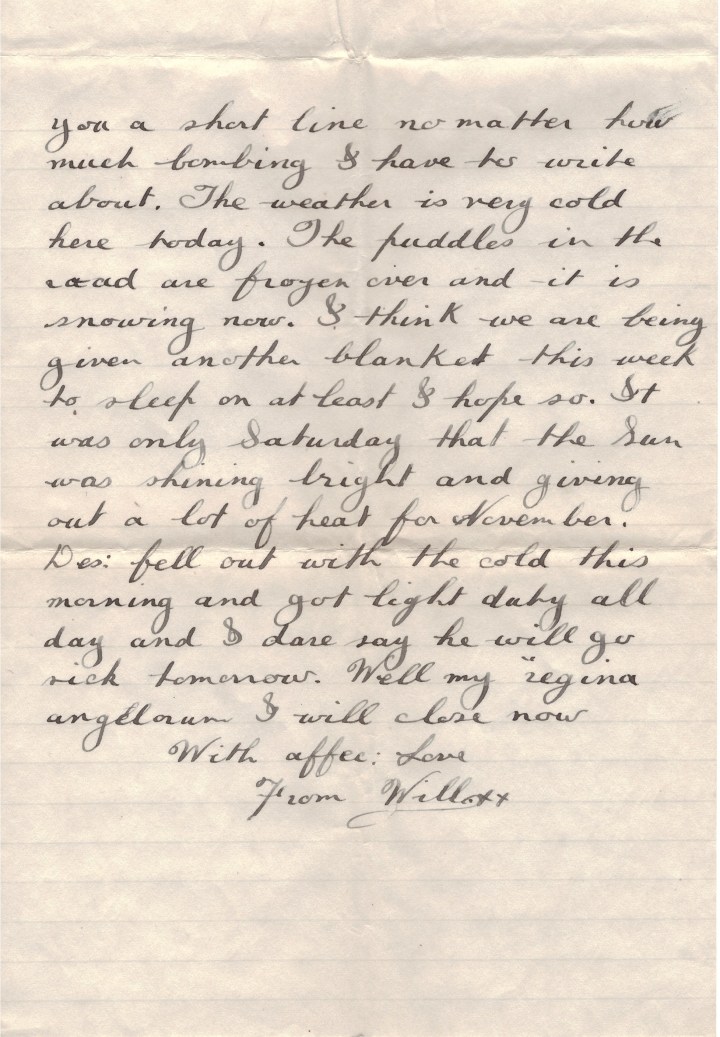 you a short line no matter how
much bombing I have to write
about. The weather is very cold
here today. The puddles in the
road are frozen over and it is
snowing now. I think we are being
given another blanket this week
to sleep on at least I hope so. It
was only Saturday that the Sun
was shining bright and giving
out a lot of heat for November.
Des: fell out with the cold this
morning and got light duty all
day and I dare say he will go
sick tomorrow. Well my "regina
angelorum I will close now
With affec: Love
From Will xx